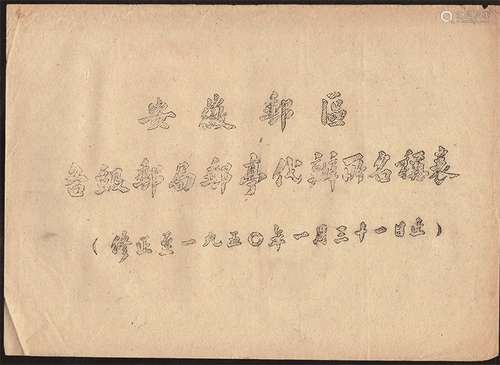 安徽郵區
各級郵局郵事代辦所名稱表
(修正至一九五〇年一月三十一日止)